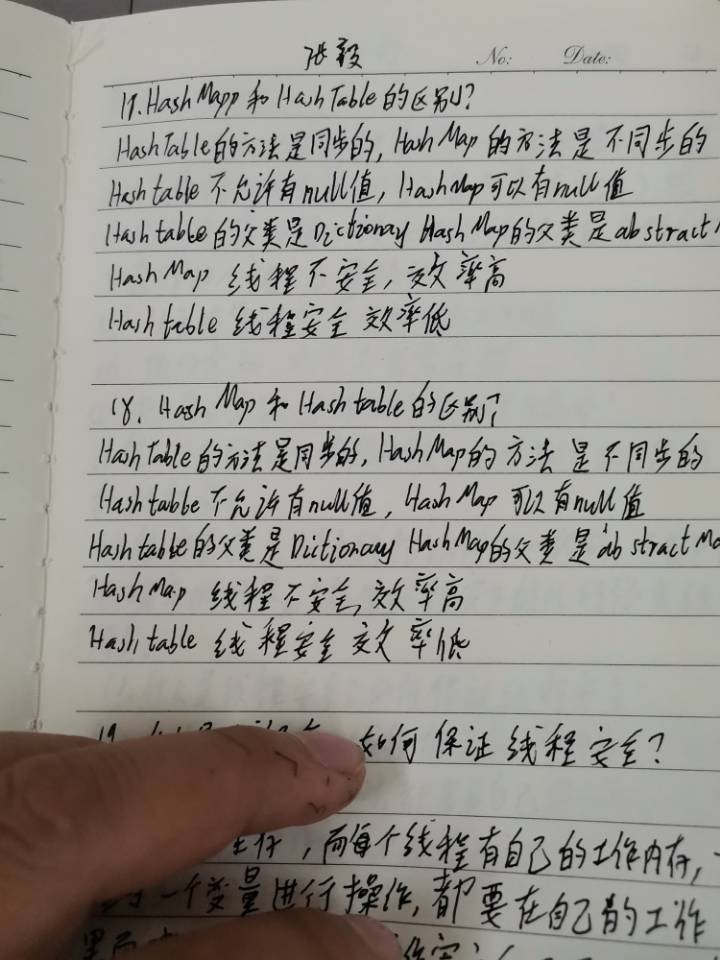 张毅 No: Date:
17.HashMapp 和 HashTable的区别?
HashTable的方法是同步的, HashMap 的方法是不同步的
Hashtable 不允许有null值, HashMap可以有null值
Hashtable的父类是Dictionary HashMap的父类是abstract
HashMap 线程不安全, 效率高
Hashtable 线程安全 效率低
18. HashMap 和 Hashtable的区别?
HashTable的方法是同步的, HashMap的方法是不同步的
Hashtabbe 不允许有null值, HashMap 可以有null值
Hashtable的父类是Dictionary HashMap的父类是abstractMa
HashMap 线程不安全, 效率高
Hashtable 线程安全 效率低
19 如何保证线程安全?
, 而每个线程有自己的工作内存,
一个变量进行操作, 都要在自己的工作
里